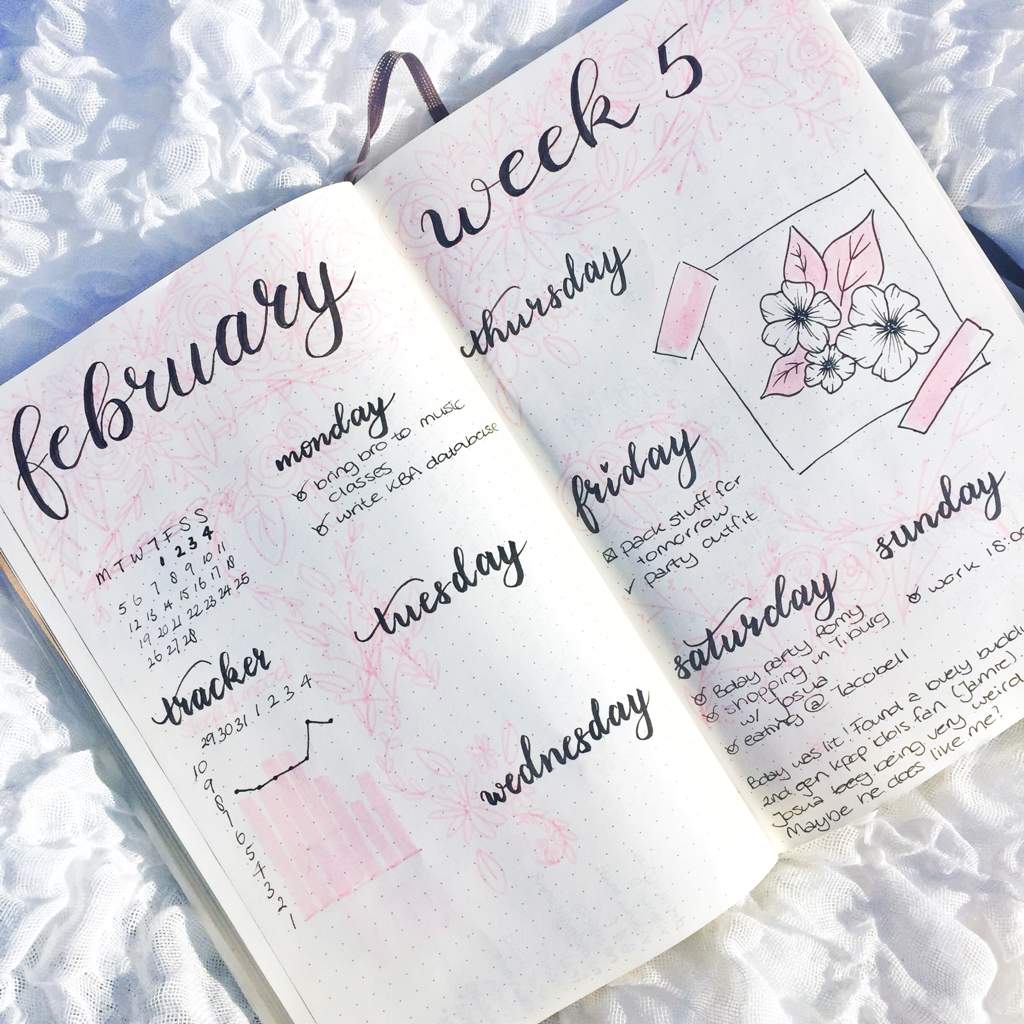 february
monday
bring bro to music
classes
write KBA database
M T W T F S S
1 2 3 4
5 6 7 8 9 10 11
12 13 14 15 16 17 18
19 20 21 22 23 24 25
26 27 28
tuesday
tracker
29 30 31 1 2 3 4
10
9
8
7
6
5
4
3
2
1
wednesday
week 5
thursday
friday
pack stuff for
tomorrow
party outfit
saturday
Bday party Romy
shopping in Tilburg
w/ Josua
eating @ Tacobell
Bday was lit! Found a lovely
2nd gen kpop idols fan (Jamie).
Josua being very weird
Maybe he does like me?
sunday
work 18:00